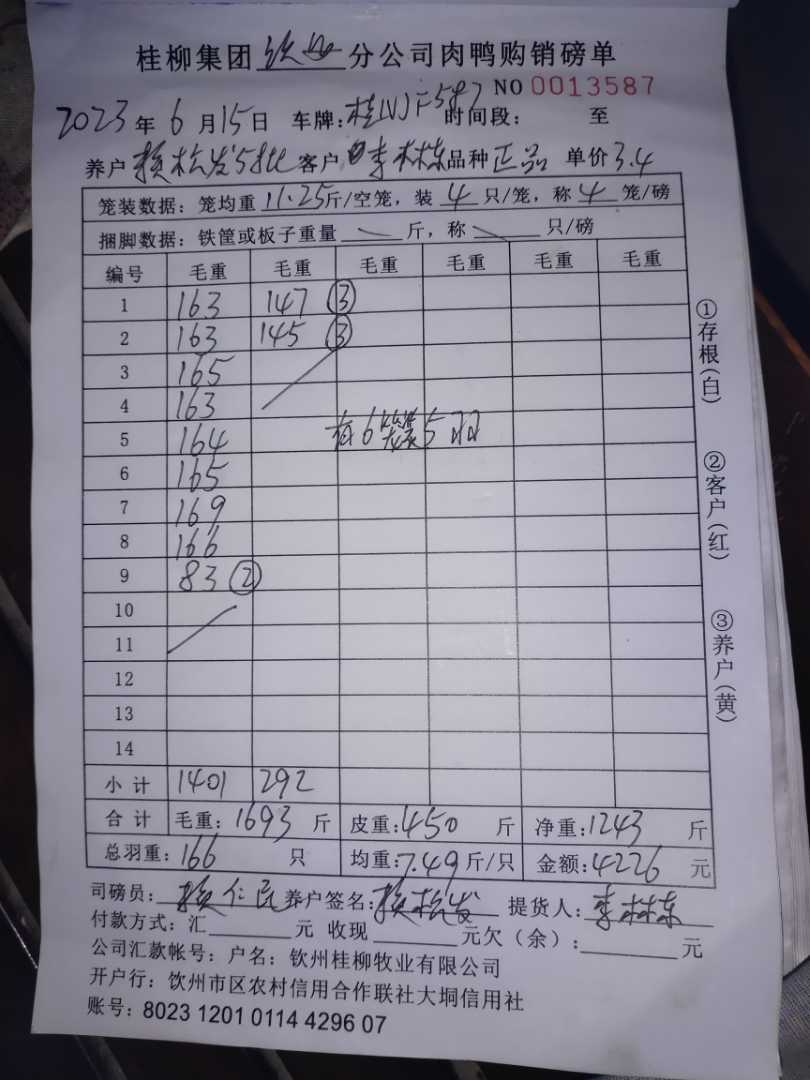 桂柳集团 钦州 分公司肉鸭购销磅单
NO 0013587
2023 年 6 月 15 日 车牌: 时间段: 至
养户 赖松发5批 客户 李林栋 品种 正品 单价 3.4
笼装数据: 笼均重 11.25 斤/空笼, 装 4 只/笼, 称 4 笼/磅
捆脚数据: 铁筐或板子重量 斤, 称 只/磅
编号 毛重 毛重 毛重 毛重 毛重 毛重
1 163 147 ③
2 163 145 ③
3 165
4 163
5 164 有6笼装5羽
6 165
7 169
8 166
9 83 ②
10
11
12
13
14
小计 1401 292
合计 毛重: 1693 斤 皮重: 450 斤 净重: 1243 斤
总羽重: 166 只 均重: 7.49 斤/只 金额: 4226 元
司磅员: 赖仁民 养户签名: 赖松发 提货人: 李林栋
付款方式: 汇 元 收现 元欠(余): 元
公司汇款帐号: 户名: 钦州桂柳牧业有限公司
开户行: 钦州市区农村信用合作联社大垌信用社
账号: 8023 1201 0114 4296 07
①存根(白)
②客户(红)
③养户(黄)